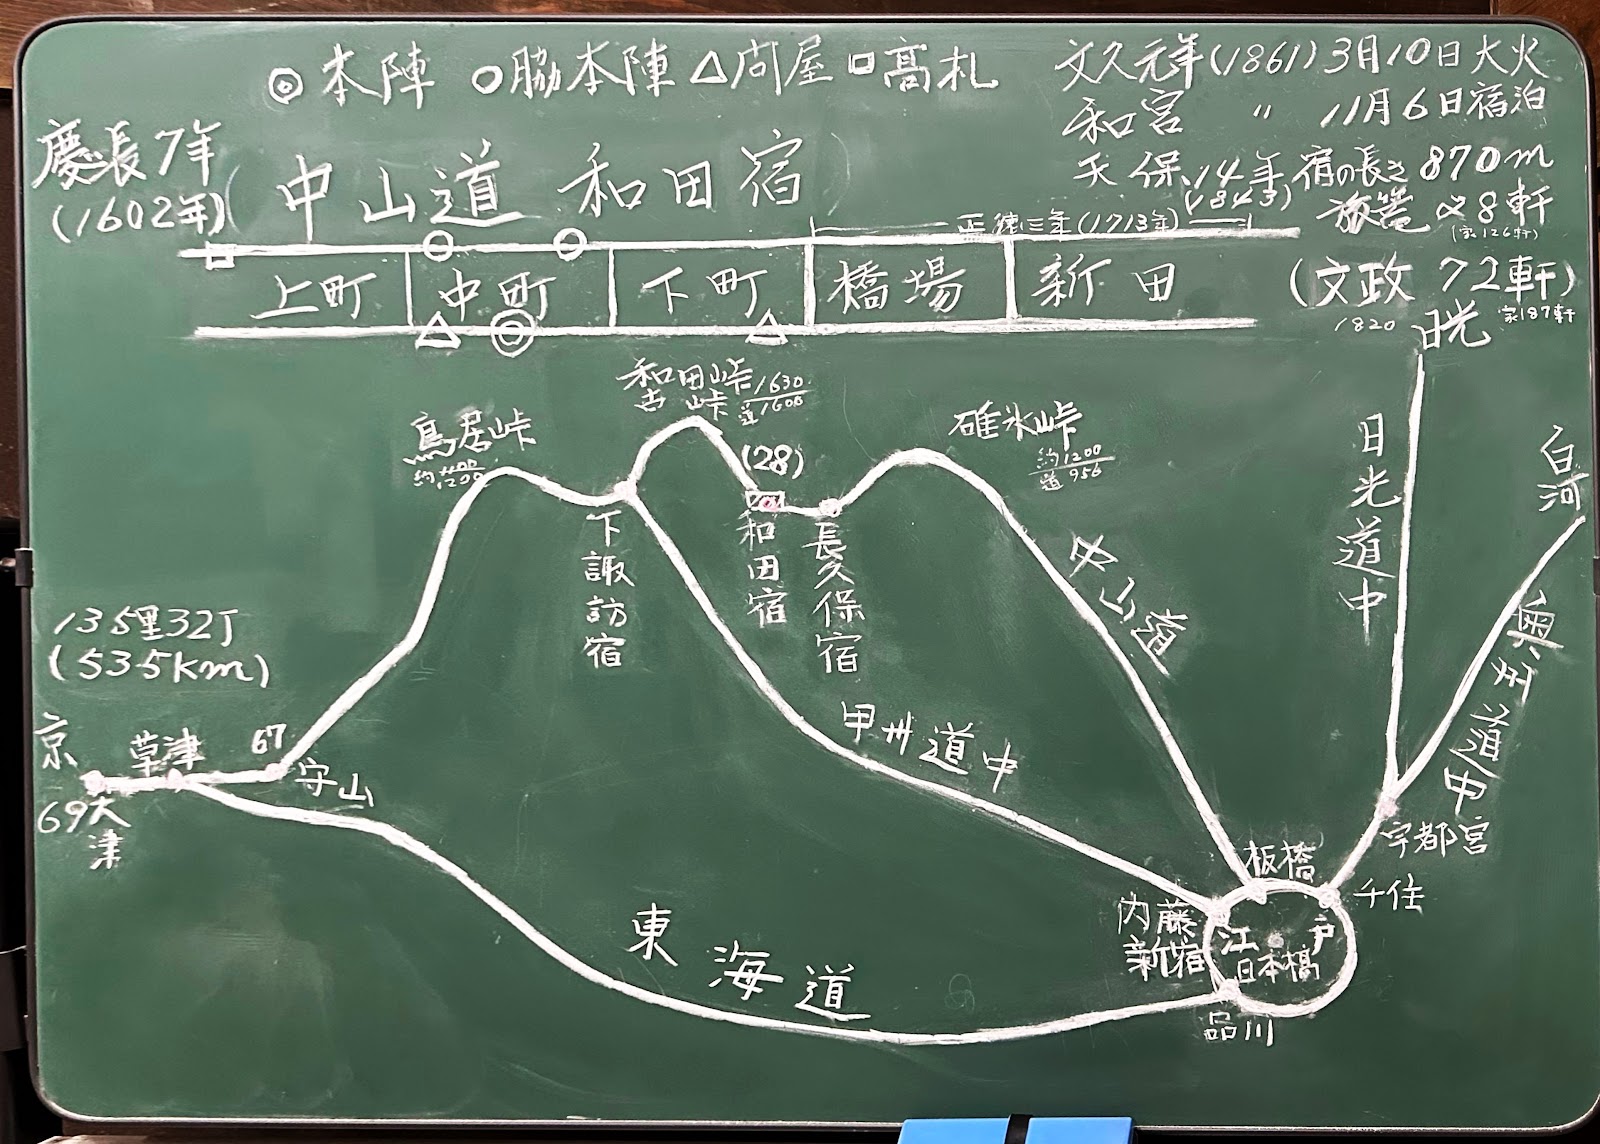 ◎本陣 ○脇本陣 △問屋 □高札
文久元年(1861)3月10日大火
和宮 〃 11月6日宿泊
天保14年 宿の長さ870m
(1843)
旅籠 28軒
(家126軒)
(文政 72軒)
1820
家187軒
慶長7年
(1602年)
中山道 和田宿
正徳三年(1713年)
上町 中町 下町 橋場 新田
和田峠 1630
古 峠 道1600
鳥居峠
約1200
(28)
碓氷峠
約1200
道 956
日光
日光道中
白河
奥州道中
下諏訪宿
和田宿
長久保宿
中山道
135里32丁
(535km)
甲州道中
京
草津
67
守山
69大津
東海道
宇都宮
板橋
千住
内藤
新宿
江戸
日本橋
品川